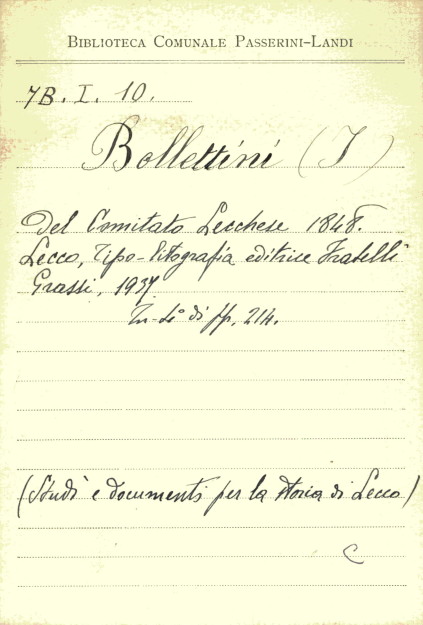 BIBLIOTECA COMUNALE PASSERINI-LANDI
7B. I. 10.
Bollettini (I)
Del Comitato Lecchese 1848.
Lecco, Tipo-litografia editrice Fratelli
Grassi, 1937
In-4° di pp. 214.
(Studi e documenti per la storia di Lecco)
C